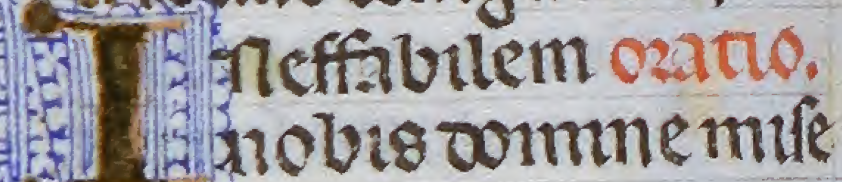 Neffabilem oratio.
nobis domine mise